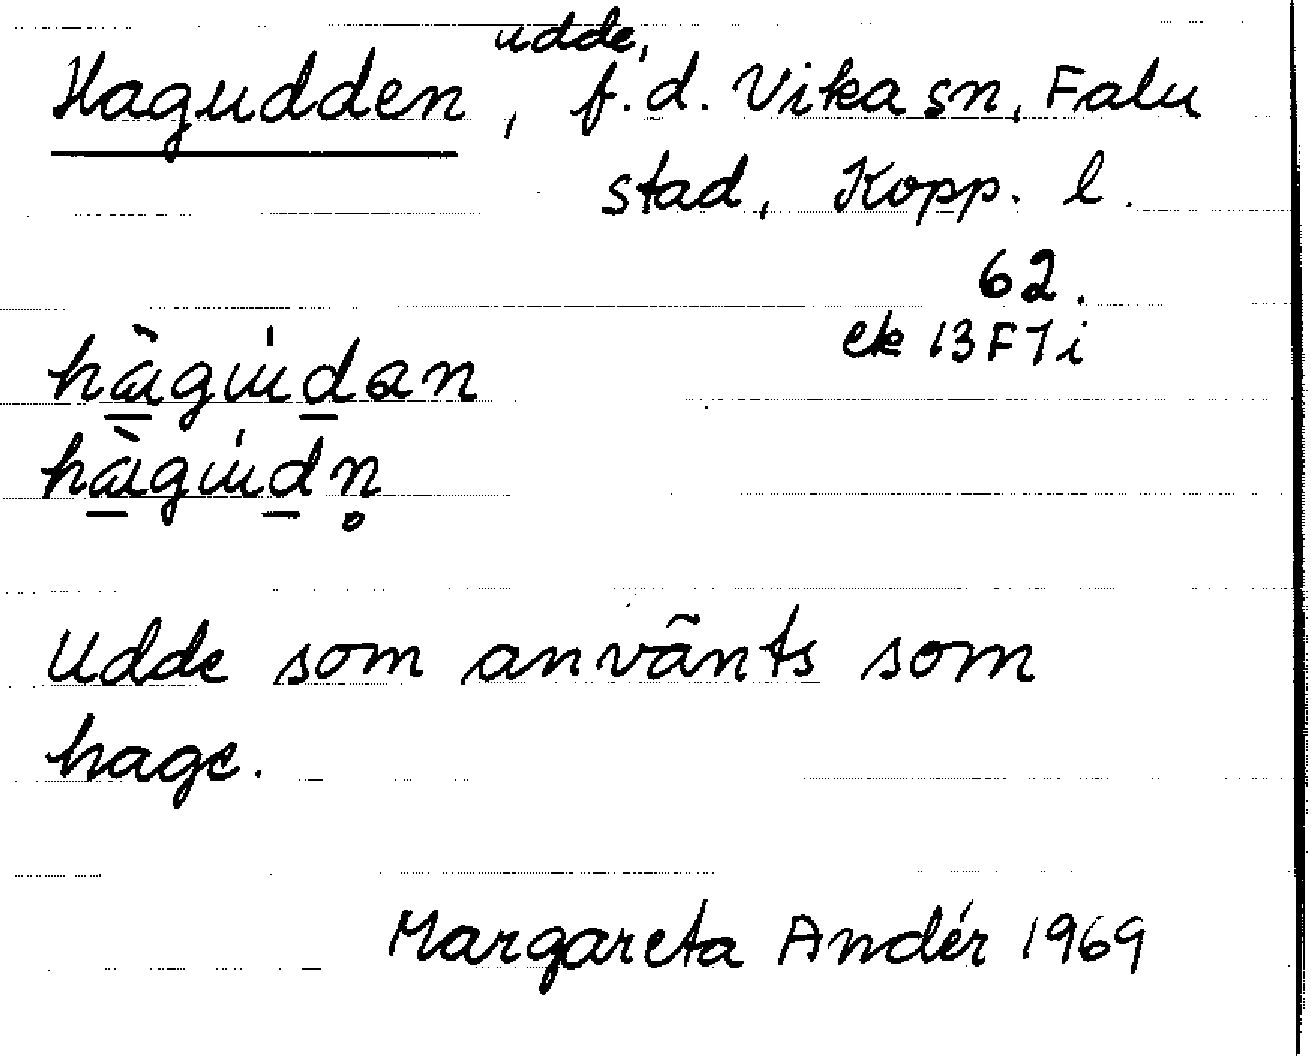 Hagudden, udde, f.d. Vika sn, Falu
stad, Kopp. l.
62.
ek 13F7i
hàgudan
hàgudn̥
Udde som använts som
hage.
Margareta Andér 1969